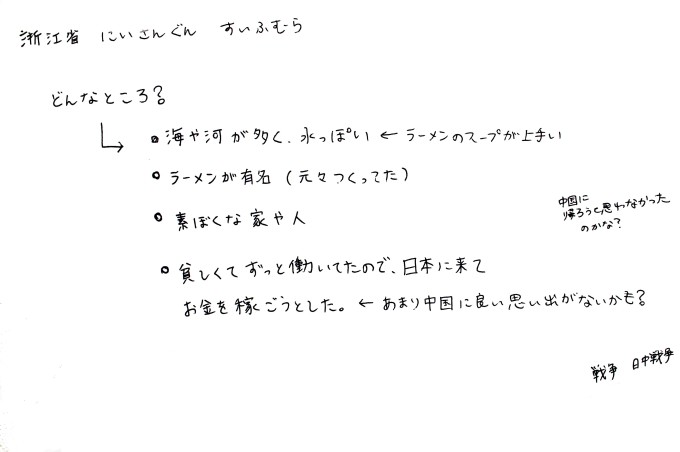 浙江省 にいさんぐん すいふむら
どんなところ?
• 海や河が多く、水っぽい ← ラーメンのスープが上手い
• ラーメンが有名 (元々つくってた)
• 素ぼくな家や人
中国に
帰ろうと思わなかった
のかな?
• 貧しくてずっと働いてたので、日本に来て
お金を稼ごうとした。 ← あまり中国に良い思い出がないかも?
戦争 日中戦争